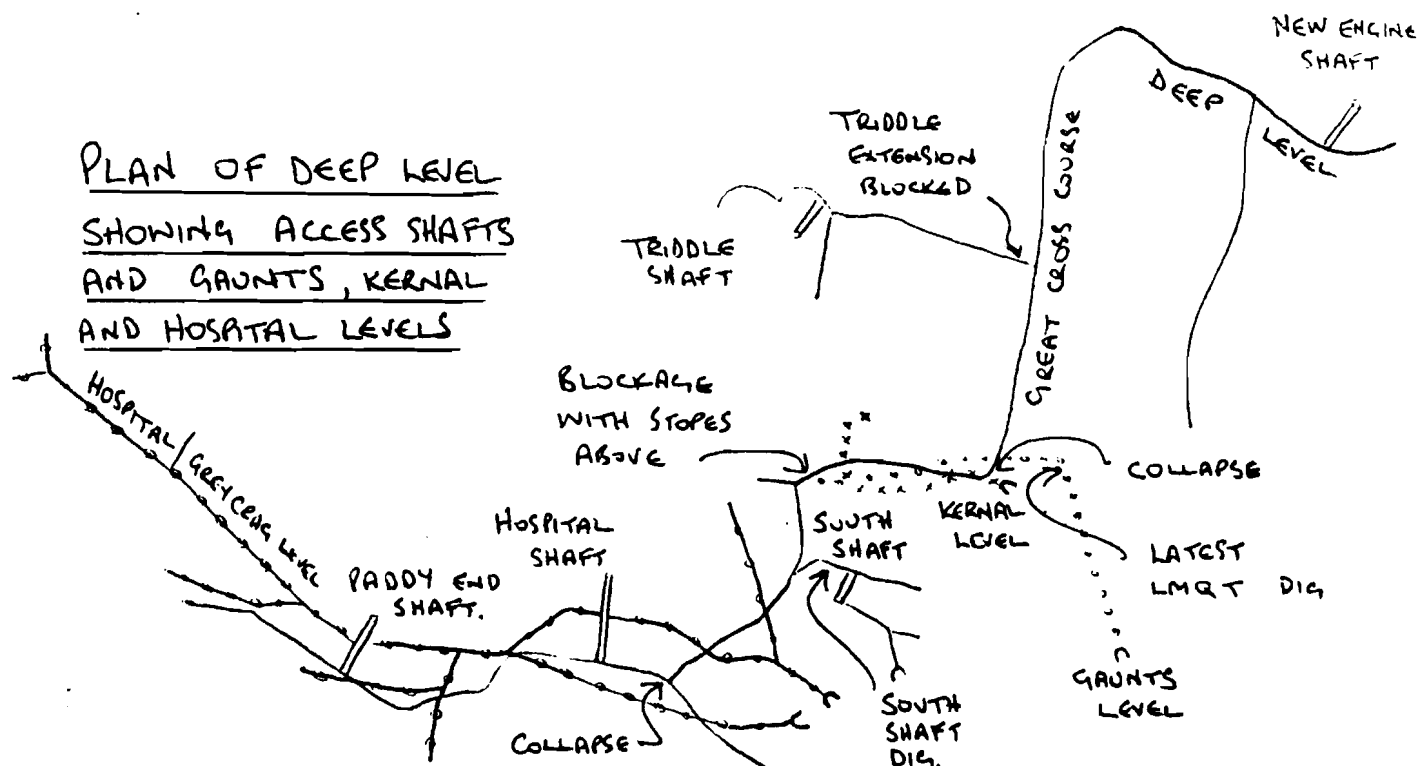 PLAN OF DEEP LEVEL
SHOWING ACCESS SHAFTS
AND GAUNTS, KERNAL
AND HOSPITAL LEVELS
NEW ENGINE
SHAFT
DEEP
LEVEL
TRIDDLE
EXTENSION
BLOCKED
GREAT CROSS COURSE
TRIDDLE
SHAFT
BLOCKAGE
WITH STOPES
ABOVE
COLLAPSE
HOSPITAL/
GREY CRAG LEVEL
HOSPITAL
SHAFT
SOUTH
SHAFT
KERNAL
LEVEL
LATEST
LMQT DIG
PADDY END
SHAFT.
GAUNTS
LEVEL
SOUTH
SHAFT
DIG.
COLLAPSE